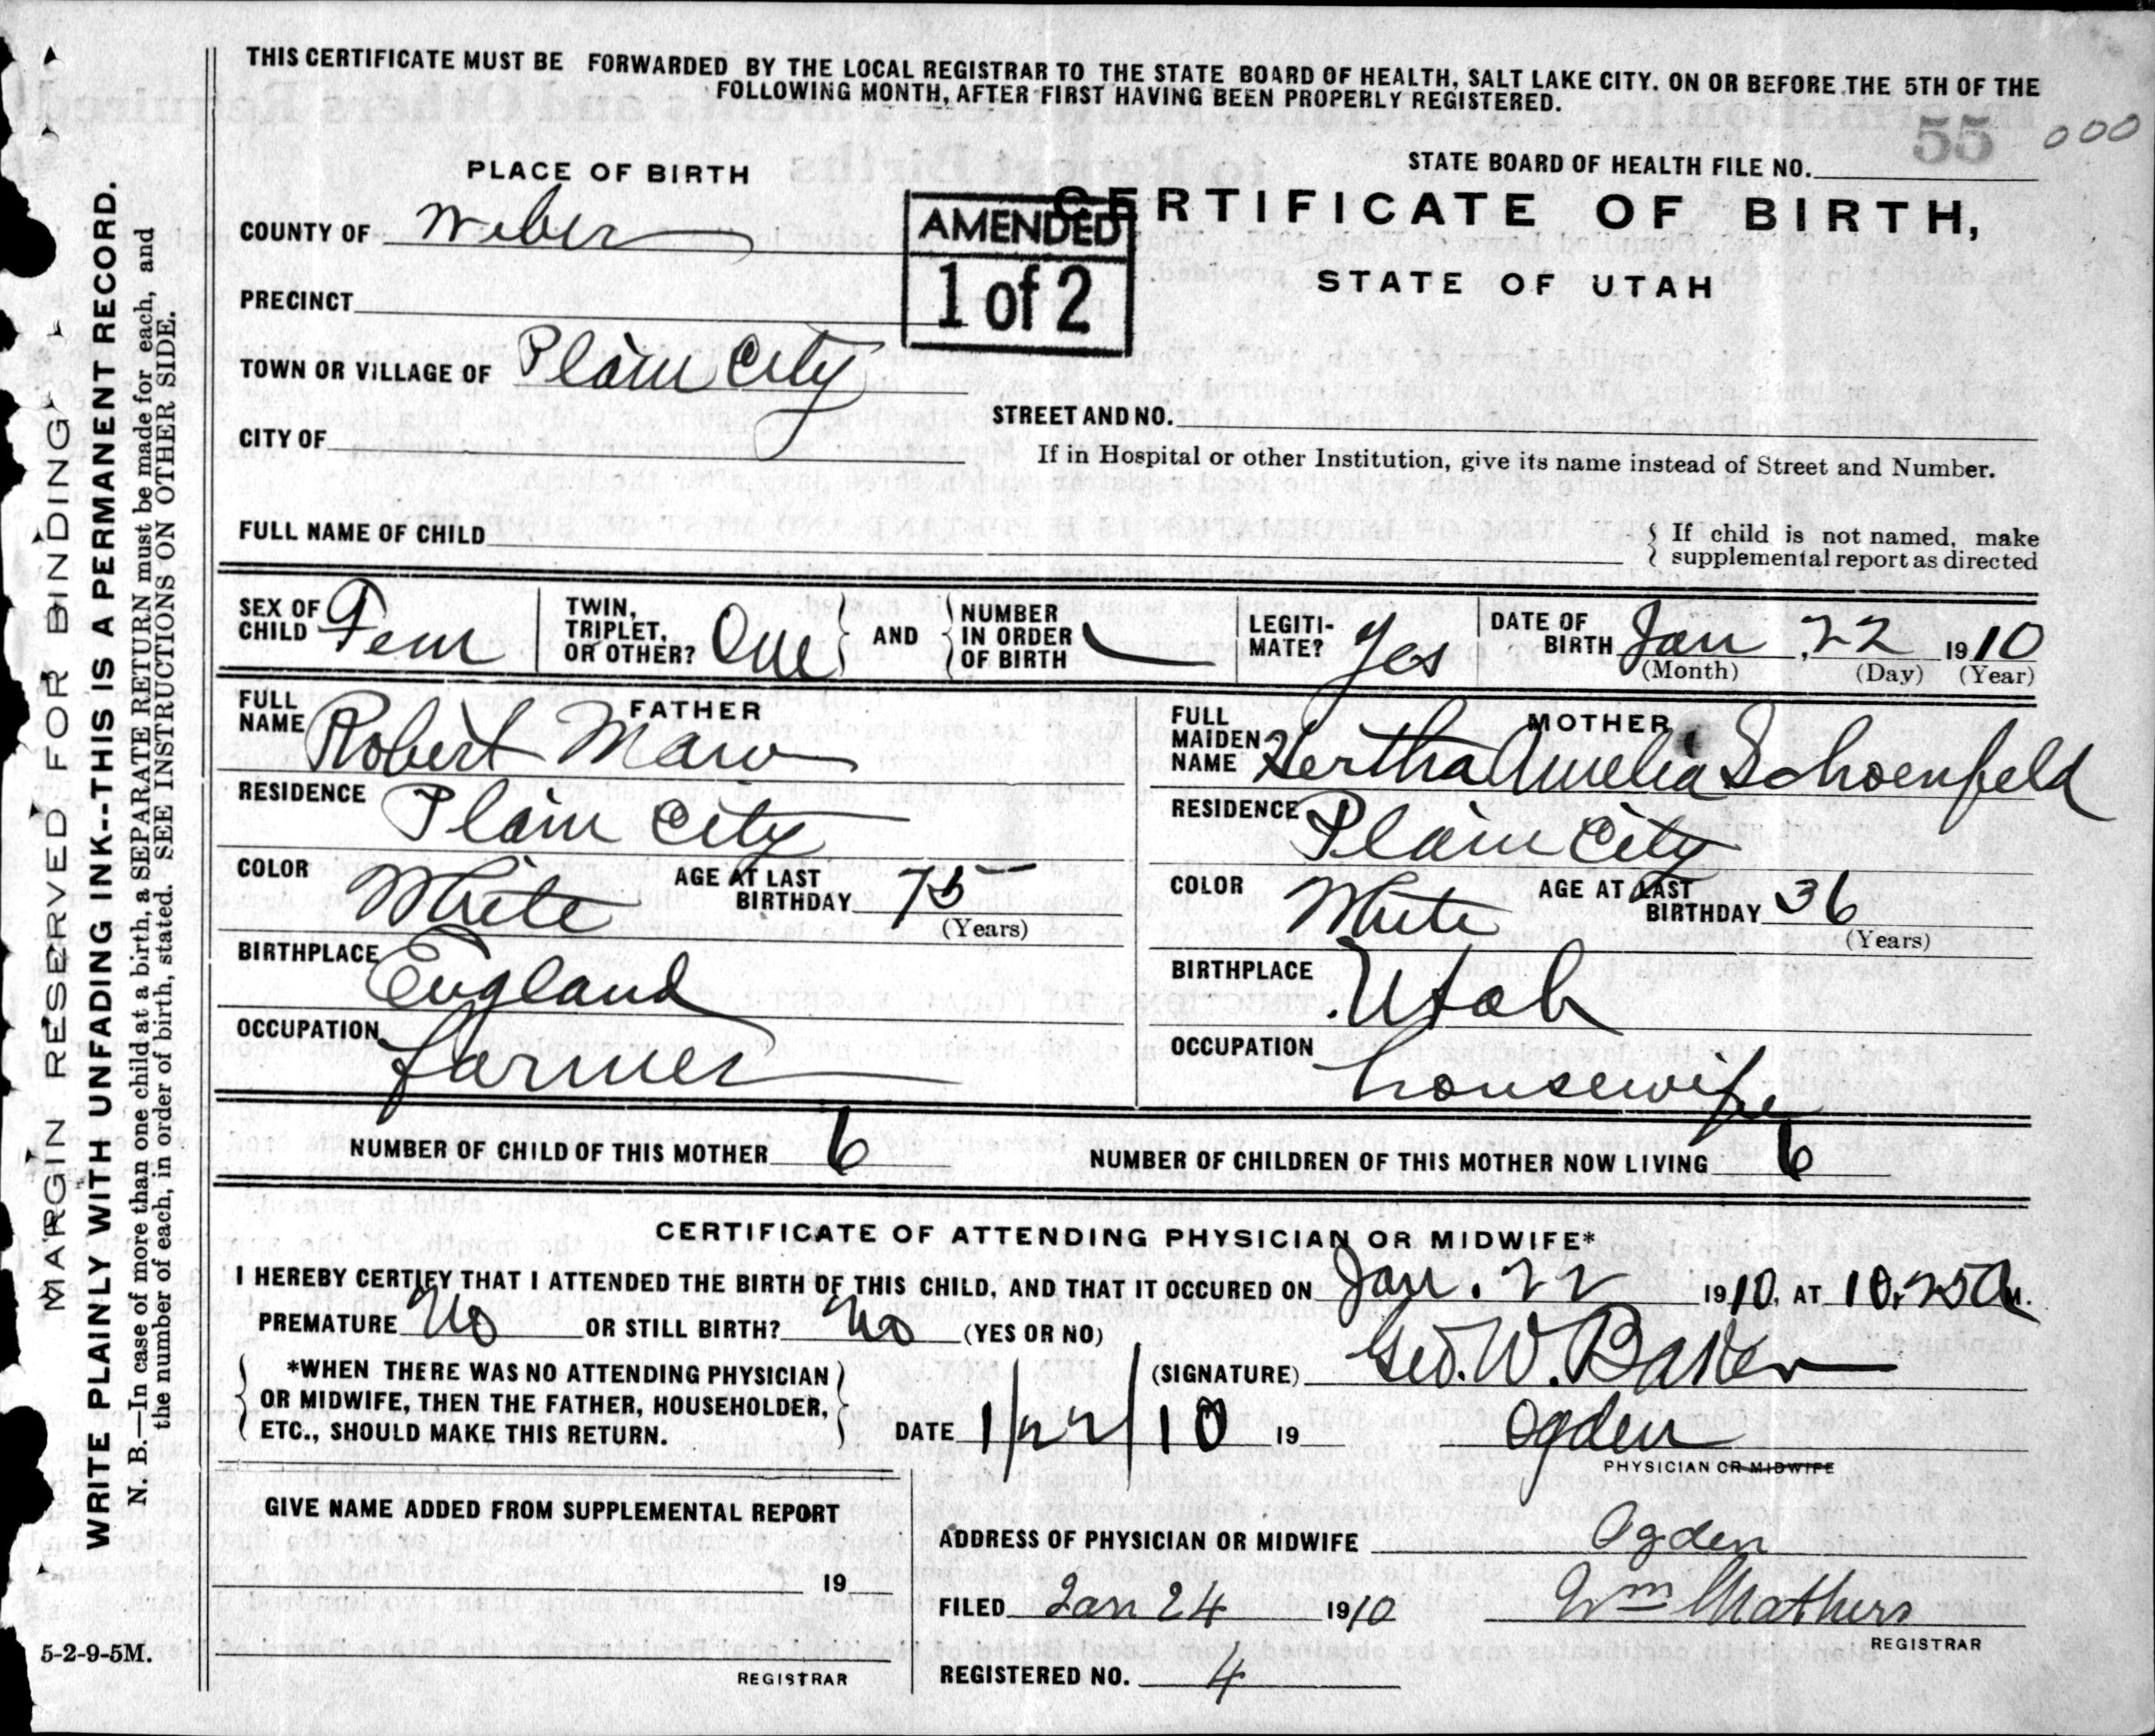 THIS CERTIFICATE MUST BE FORWARDED BY THE LOCAL REGISTRAR TO THE STATE BOARD OF HEALTH, SALT LAKE CITY. ON OR BEFORE THE 5TH OF THE
FOLLOWING MONTH, AFTER FIRST HAVING BEEN PROPERLY REGISTERED.
55 000
PLACE OF BIRTH
STATE BOARD OF HEALTH FILE NO.
COUNTY OF Weber
AMENDED
1 of 2
CERTIFICATE OF BIRTH,
STATE OF UTAH
PRECINCT
TOWN OR VILLAGE OF Plain City
STREET AND NO.
CITY OF
If in Hospital or other Institution, give its name instead of Street and Number.
FULL NAME OF CHILD
If child is not named, make
supplemental report as directed
SEX OF CHILD Fem
TWIN, TRIPLET, OR OTHER? One
AND
NUMBER IN ORDER OF BIRTH
LEGITI-MATE? Yes
DATE OF BIRTH Jan, 22 1910
(Month) (Day) (Year)
FATHER
FULL NAME Robert Maw
MOTHER
FULL MAIDEN NAME Hertha Amelia Schoenfeld
RESIDENCE Plain City
RESIDENCE Plain City
COLOR White AGE AT LAST BIRTHDAY 75
(Years)
COLOR White AGE AT LAST BIRTHDAY 36
(Years)
BIRTHPLACE England
BIRTHPLACE Utah
OCCUPATION farmer
OCCUPATION housewife
NUMBER OF CHILD OF THIS MOTHER 6
NUMBER OF CHILDREN OF THIS MOTHER NOW LIVING 6
CERTIFICATE OF ATTENDING PHYSICIAN OR MIDWIFE*
I HEREBY CERTIFY THAT I ATTENDED THE BIRTH OF THIS CHILD, AND THAT IT OCCURED ON Jan. 22 1910, AT 10.25 A M.
PREMATURE No OR STILL BIRTH? No (YES OR NO)
*WHEN THERE WAS NO ATTENDING PHYSICIAN
OR MIDWIFE, THEN THE FATHER, HOUSEHOLDER,
ETC., SHOULD MAKE THIS RETURN.
(SIGNATURE) Geo. W. Baker
DATE 1/22/10 19 Ogden
PHYSICIAN OR MIDWIFE
GIVE NAME ADDED FROM SUPPLEMENTAL REPORT
ADDRESS OF PHYSICIAN OR MIDWIFE Ogden
19
FILED Jan 24 1910 Wm Mathers
REGISTRAR
REGISTRAR
REGISTERED NO. 4
5-2-9-5M.
MARGIN RESERVED FOR BINDING
WRITE PLAINLY WITH UNFADING INK--THIS IS A PERMANENT RECORD.
N. B.—In case of more than one child at a birth, a SEPARATE RETURN must be made for each, and
the number of each, in order of birth, stated. SEE INSTRUCTIONS ON OTHER SIDE.